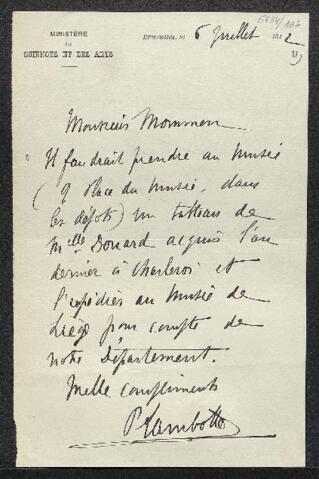 5654/167
MINISTÈRE
DES
SCIENCES ET DES ARTS
Bruxelles, le 6 Juillet 1912
Monsieur Mommen
Il faudrait prendre au Musée
(9 Place du Musée, dans
les dépots) un tableau de
Melle Douard acquis l'an
dernier à Charleroi et
l'expédier au Musée de
Liége pour compte de
notre Département.
Mille compliments
P Lambotte